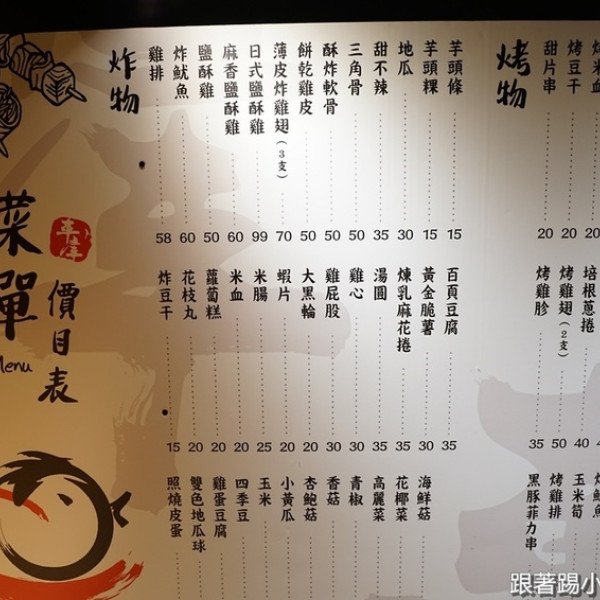 菜單
價目表
Menu
炸物
雞排 58
炸魷魚 60
鹽酥雞 50
麻香鹽酥雞 60
日式鹽酥雞 99
薄皮炸雞翅(3支) 70
餅乾雞皮 50
酥炸軟骨 50
三角骨 50
甜不辣 35
地瓜 30
芋頭粿 15
芋頭條 15
炸豆干 15
花枝丸 20
蘿蔔糕 20
米血 20
米腸 25
蝦片 20
大黑輪 20
雞屁股 30
雞心 30
湯圓 35
煉乳麻花捲 35
黃金脆薯 30
百頁豆腐 35
照燒皮蛋
雙色地瓜球
雞蛋豆腐
四季豆
玉米
小黃瓜
杏鮑菇
香菇
青椒
高麗菜
花椰菜
海鮮菇
烤物
甜片串 20
烤豆干 20
烤米血 20
烤雞胗 35
烤雞翅(2支) 50
培根蔥捲 40
黑豚菲力串
烤雞排
玉米筍
跟著踢小